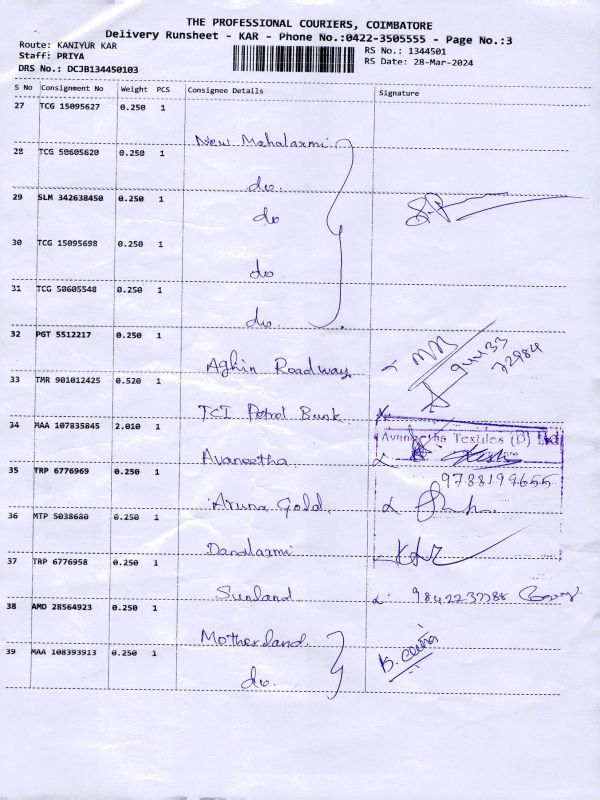 THE PROFESSIONAL COURIERS, COIMBATORE
Delivery Runsheet - KAR - Phone No.:0422-3505555 - Page No.:3
Route: KANIYUR KAR
RS No.: 1344501
Staff: PRIYA
RS Date: 28-Mar-2024
DRS No.: DCJB134450103
S No Consignment No Weight PCS Consignee Details Signature
27 TCG 15095627 0.250 1
New Mahalaxmi
28 TCG 50605620 0.250 1
do.
29 SLM 342638450 0.250 1
do
30 TCG 15095698 0.250 1
do
31 TCG 50605548 0.250 1
do.
32 PGT 5512217 0.250 1
Aghin Roadway
33 TMR 901012425 0.520 1
TCI Petrol Bunk
34 MAA 107835845 2.010 1
Avaneetha Textiles (P) Ltd
Avaneetha
35 TRP 6776969 0.250 1
9788199655
Aruna Gold
36 MTP 5038680 0.250 1
Danalaxmi
37 TRP 6776958 0.250 1
Sunland
38 AMD 28564923 0.250 1
Motherland
39 MAA 108393913 0.250 1
do.